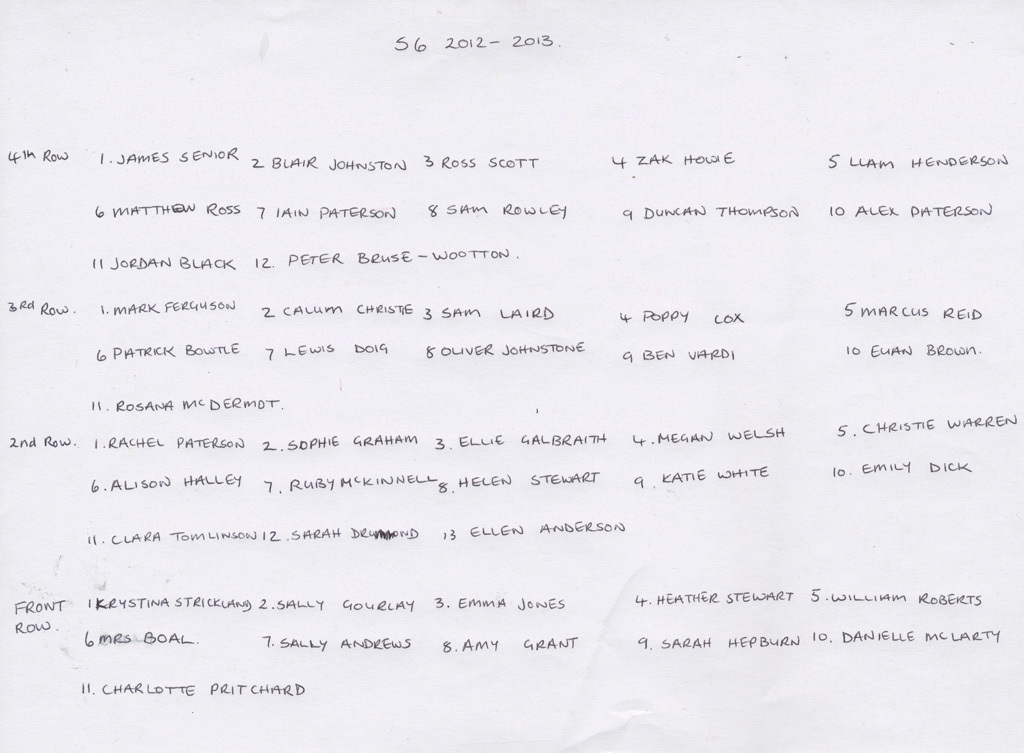 S6 2012-2013.
4th Row 1. JAMES SENIOR 2 BLAIR JOHNSTON 3 ROSS SCOTT 4 ZAK HOWIE 5 LIAM HENDERSON
6 MATTHEW ROSS 7 IAIN PATERSON 8 SAM ROWLEY 9 DUNCAN THOMPSON 10 ALEX PATERSON
11 JORDAN BLACK 12. PETER BRUSE-WOOTTON.
3rd Row. 1. MARK FERGUSON 2 CALUM CHRISTIE 3 SAM LAIRD 4 POPPY COX 5 MARCUS REID
6 PATRICK BOWTLE 7 LEWIS DOIG 8 OLIVER JOHNSTONE 9 BEN VARDI 10 EUAN BROWN.
11. ROSANA McDERMOT.
2nd Row. 1. RACHEL PATERSON 2. SOPHIE GRAHAM 3. ELLIE GALBRAITH 4. MEGAN WELSH 5. CHRISTIE WARREN
6. ALISON HALLEY 7. RUBY McKINNELL 8. HELEN STEWART 9. KATIE WHITE 10. EMILY DICK
11. CLARA TOMLINSON 12. SARAH DRUMMOND 13 ELLEN ANDERSON
FRONT ROW. 1 KRYSTINA STRICKLAND 2. SALLY GOURLAY 3. EMMA JONES 4. HEATHER STEWART 5. WILLIAM ROBERTS
6 MRS BOAL. 7. SALLY ANDREWS 8. AMY GRANT 9. SARAH HEPBURN 10. DANIELLE McLARTY
11. CHARLOTTE PRITCHARD